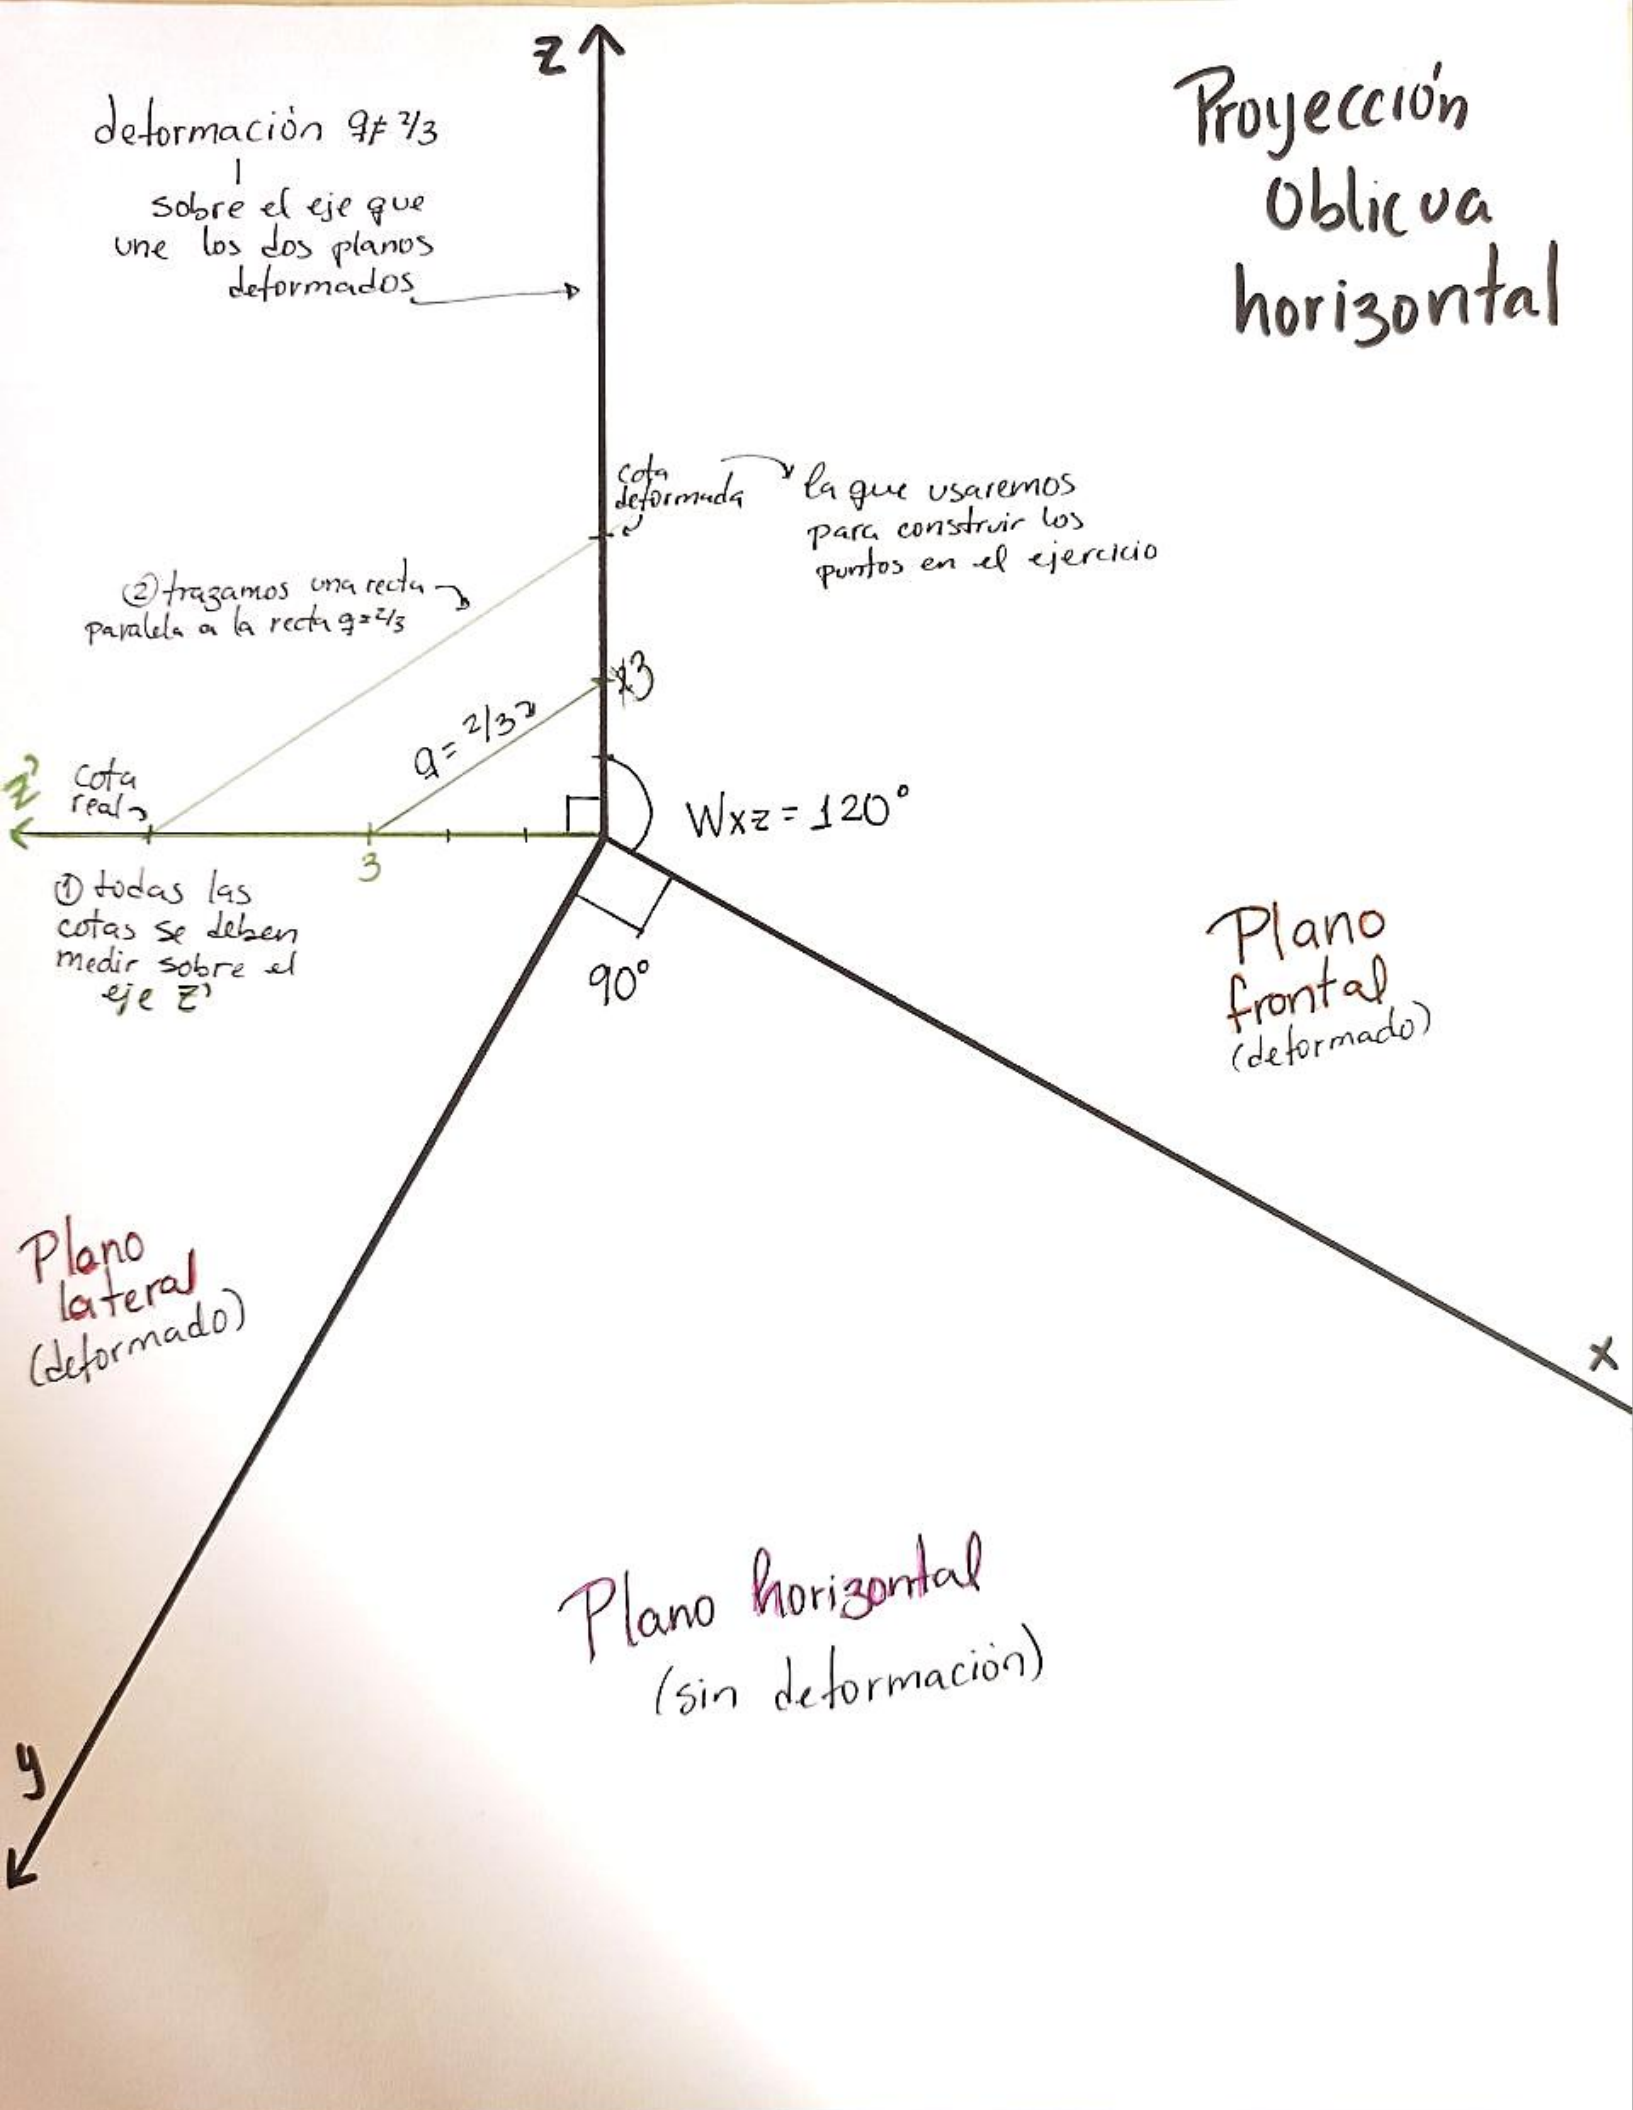 Z
Proyección
Oblicua
horizontal
deformación q≠ 2/3
sobre el eje que
une los dos planos
deformados
cota
deformada
la que usaremos
para construir los
puntos en el ejercicio
② trazamos una recta
paralela a la recta q=2/3
3
q = 2/3
Z'
cota
real
Wxz = 120°
3
① todas las
cotas se deben
medir sobre el
eje Z'
90°
Plano
frontal
(deformado)
Plano
lateral
(deformado)
x
Plano horizontal
(sin deformación)
y